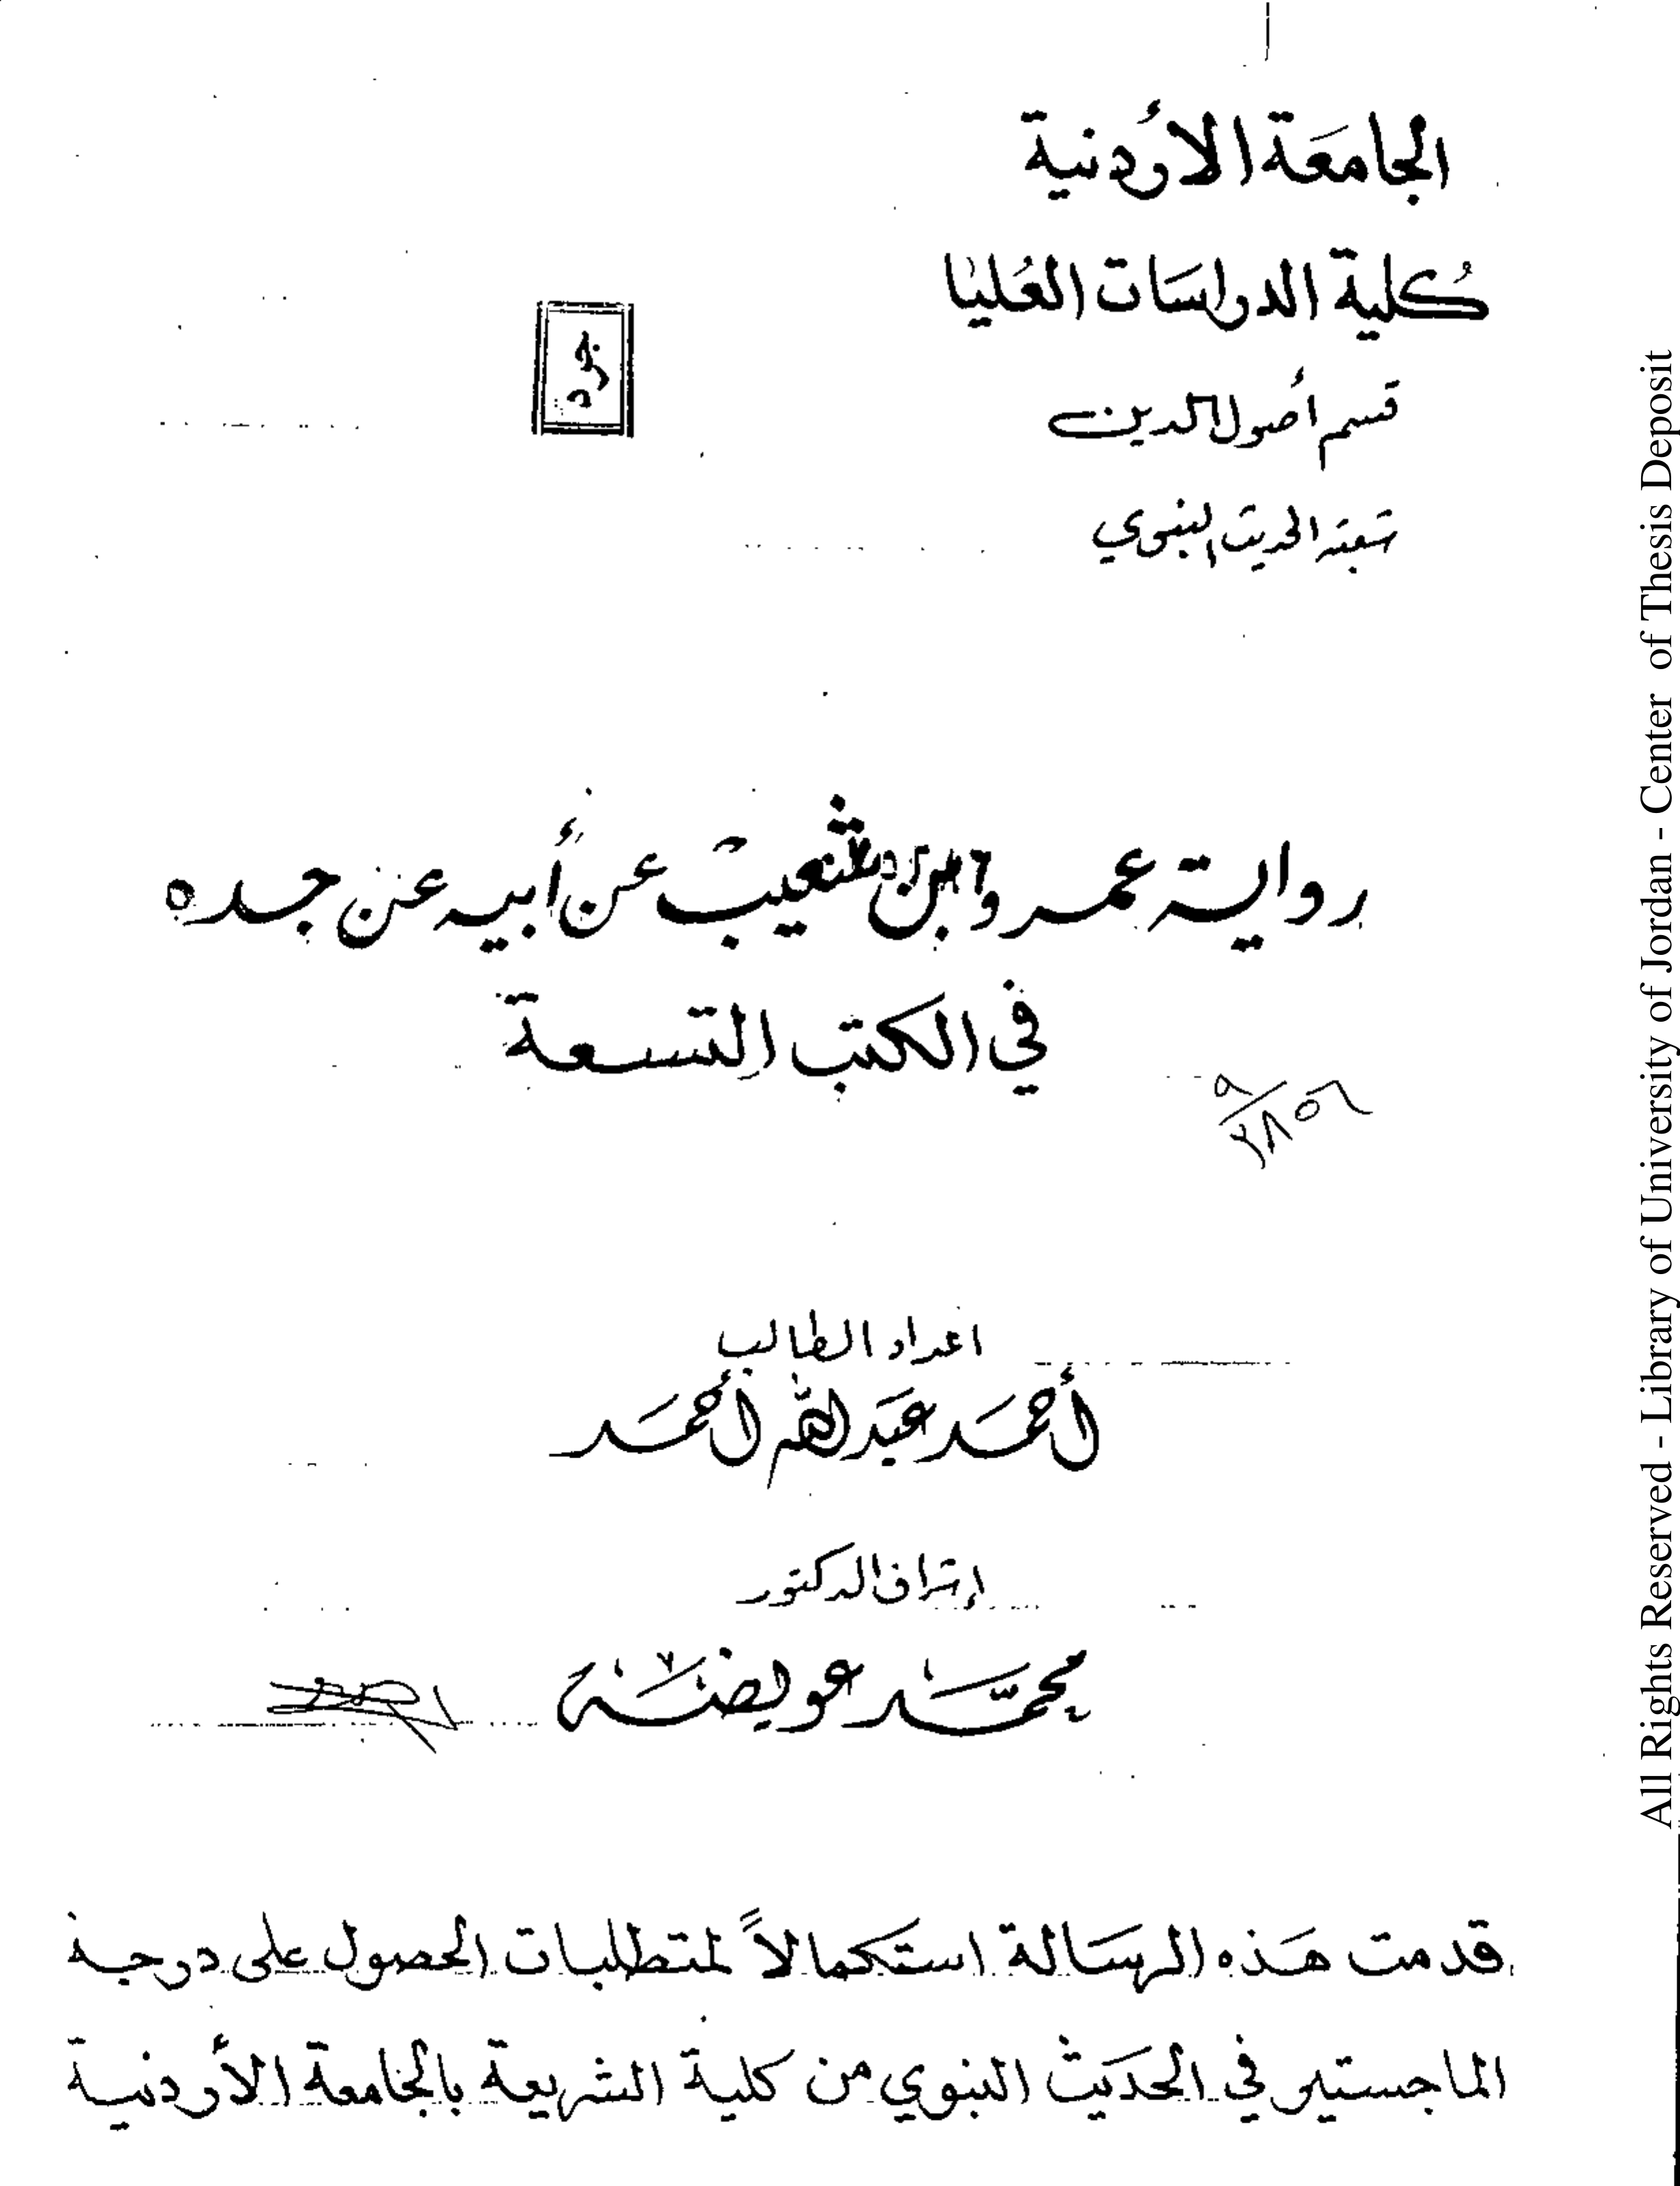 الجامعة الأردنية
كلية الدراسات العليا
جرد
قسم أصول الدين
شعبة الحديث النبوي
رواية عمرو بن شعيب عن أبيه عن جده
في الكتب التسعة
اعداد الطالب
أحمد عبدالله أحمد
إشراف الدكتور
محمد عويضة
قدمت هذه الرسالة استكمالاً لمتطلبات الحصول على درجة
الماجستير في الحديث النبوي من كلية الشريعة بالجامعة الأردنية
All Rights Reserved - Library of University of Jordan - Center of Thesis Deposit